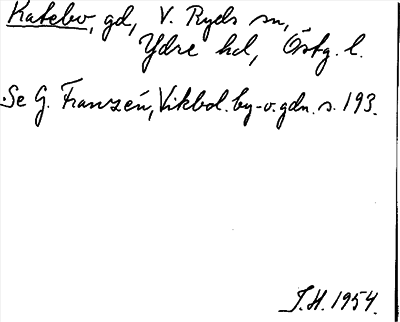 Katebo, gd, V. Ryds sn,
Ydre hd, Östg. l.
Se G. Franzén, Vikbol. by- o. gdn. s. 193.
J.H. 1954.